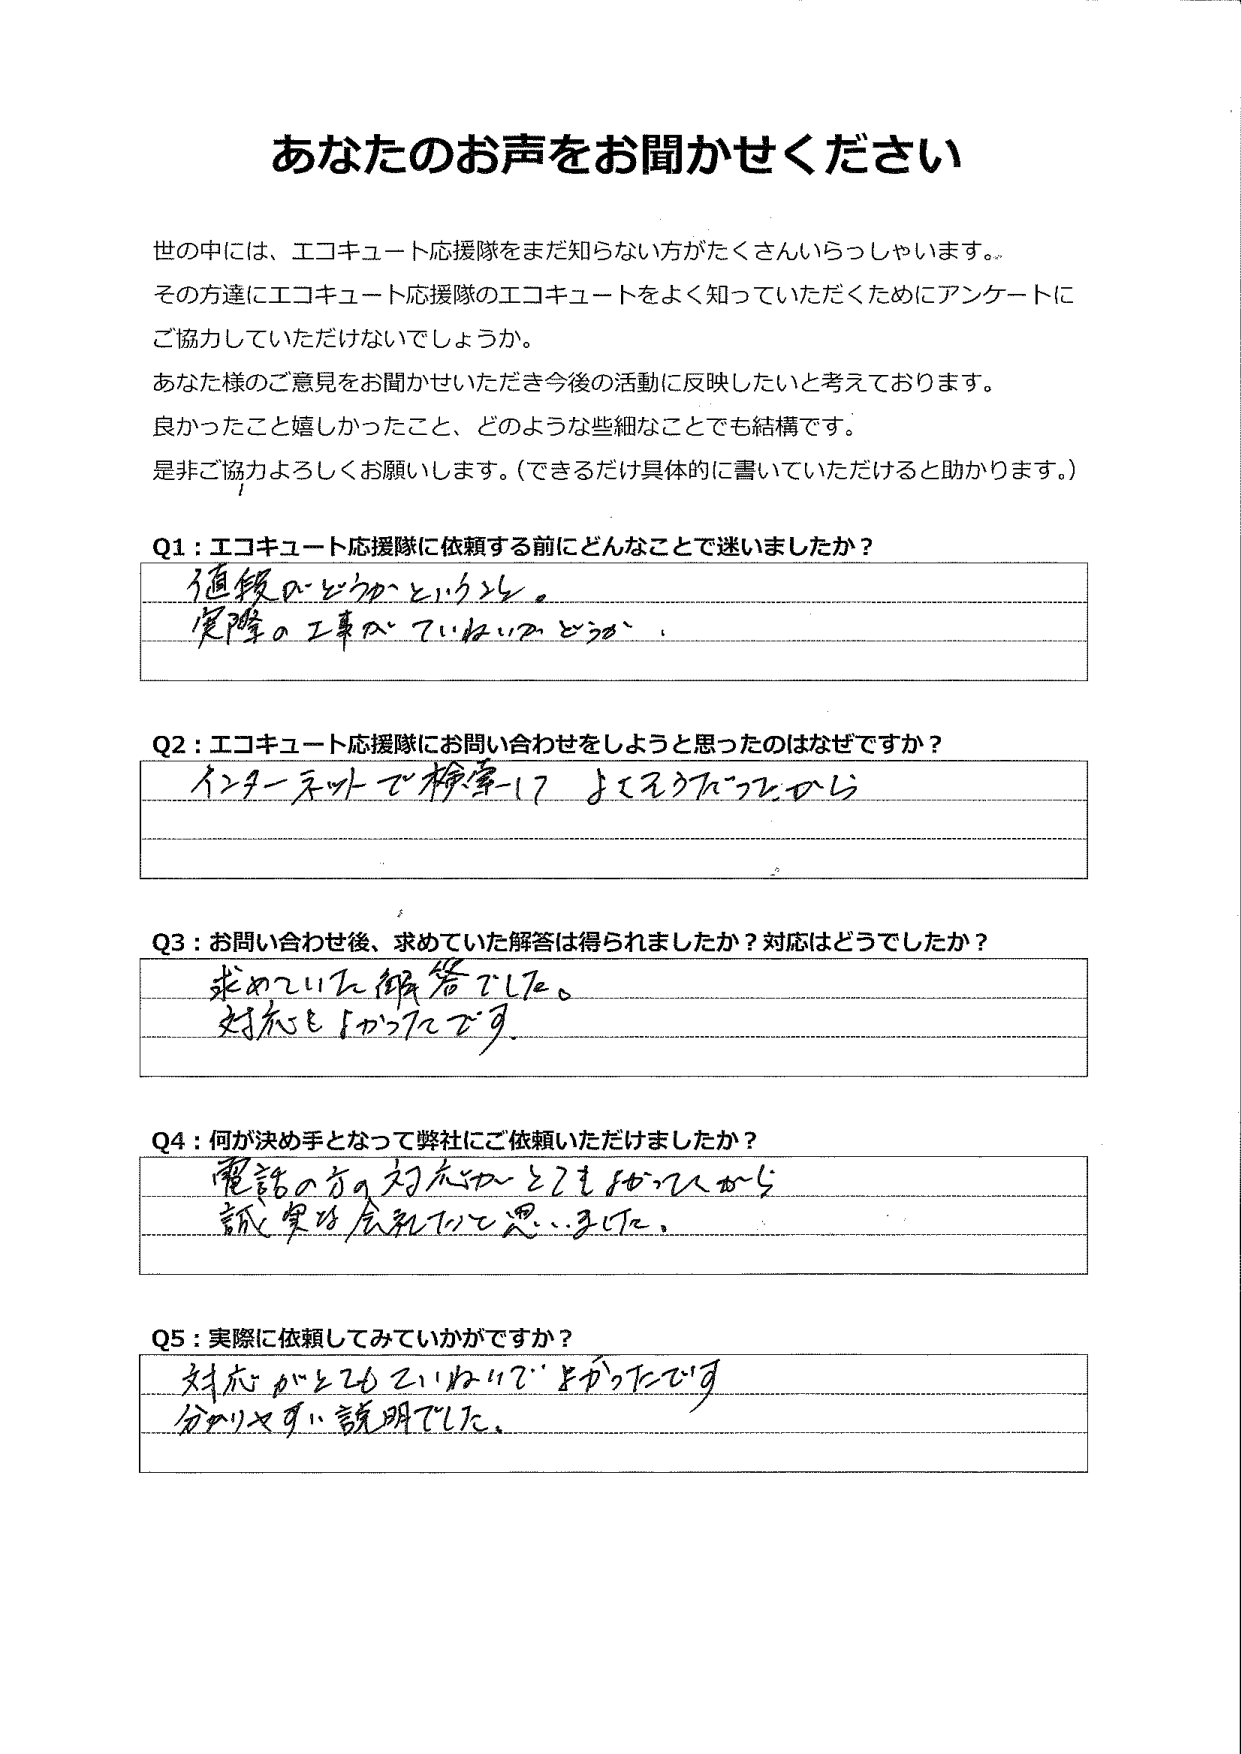 あなたのお声をお聞かせください
世の中には、エコキュート応援隊をまだ知らない方がたくさんいらっしゃいます。
その方達にエコキュート応援隊のエコキュートをよく知っていただくためにアンケートに
ご協力していただけないでしょうか。
あなた様のご意見をお聞かせいただき今後の活動に反映したいと考えております。
良かったこと嬉しかったこと、どのような些細なことでも結構です。
是非ご協力よろしくお願いします。（できるだけ具体的に書いていただけると助かります。）
Q1：エコキュート応援隊に依頼する前にどんなことで迷いましたか？
値段がどうかということ。
実際の工事がていねいかどうか、
Q2：エコキュート応援隊にお問い合わせをしようと思ったのはなぜですか？
インターネットで検索して よさそうだったから
Q3：お問い合わせ後、求めていた解答は得られましたか？対応はどうでしたか？
求めていた解答でした。
対応もよかったです.
Q4：何が決め手となって弊社にご依頼いただけましたか？
電話の方の対応がとてもよかったから
誠実な会社だと思いました。
Q5：実際に依頼してみていかがですか？
対応がとてもていねいでよかったです
分かりやすい説明でした。